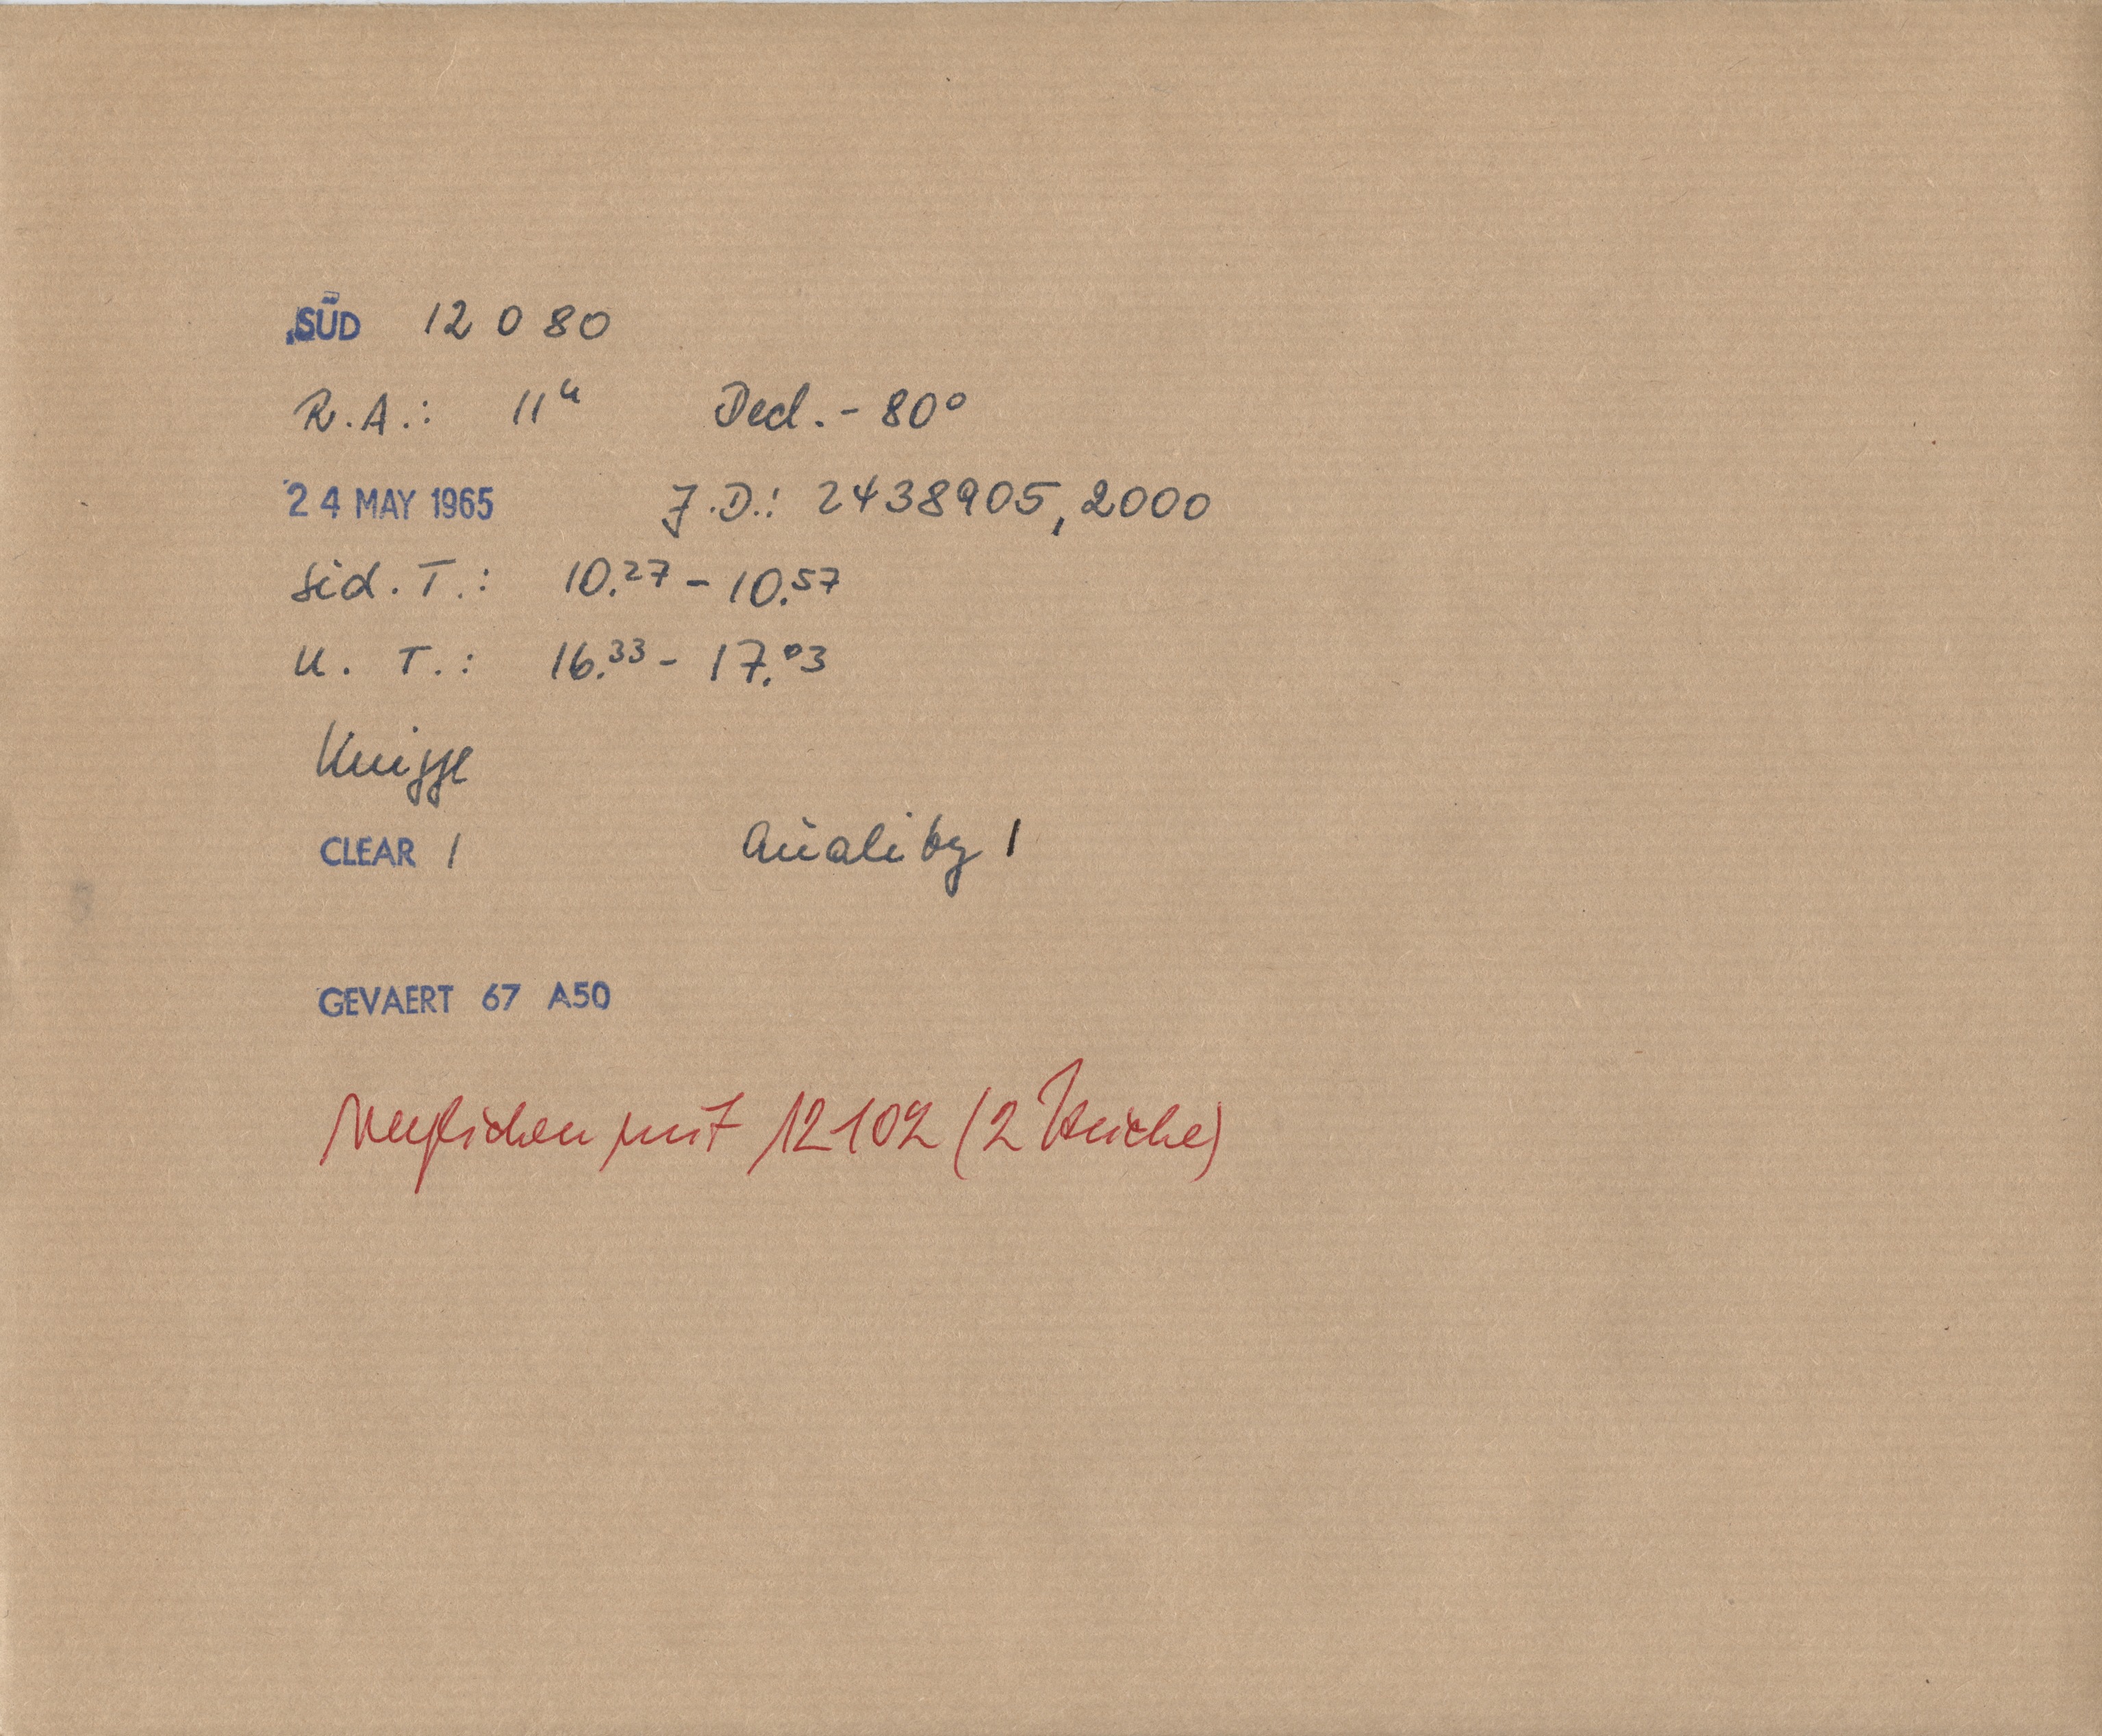 SÜD 12 0 80
R.A.: 11h Decl. - 80°
24 MAY 1965 J.D.: 2438905,2000
Sid. T.: 10.27 - 10.57
U. T.: 16.33 - 17.03
Knigge
CLEAR 1 Quality 1
GEVAERT 67 A50
Verglichen mit 12102 (2 Striche)